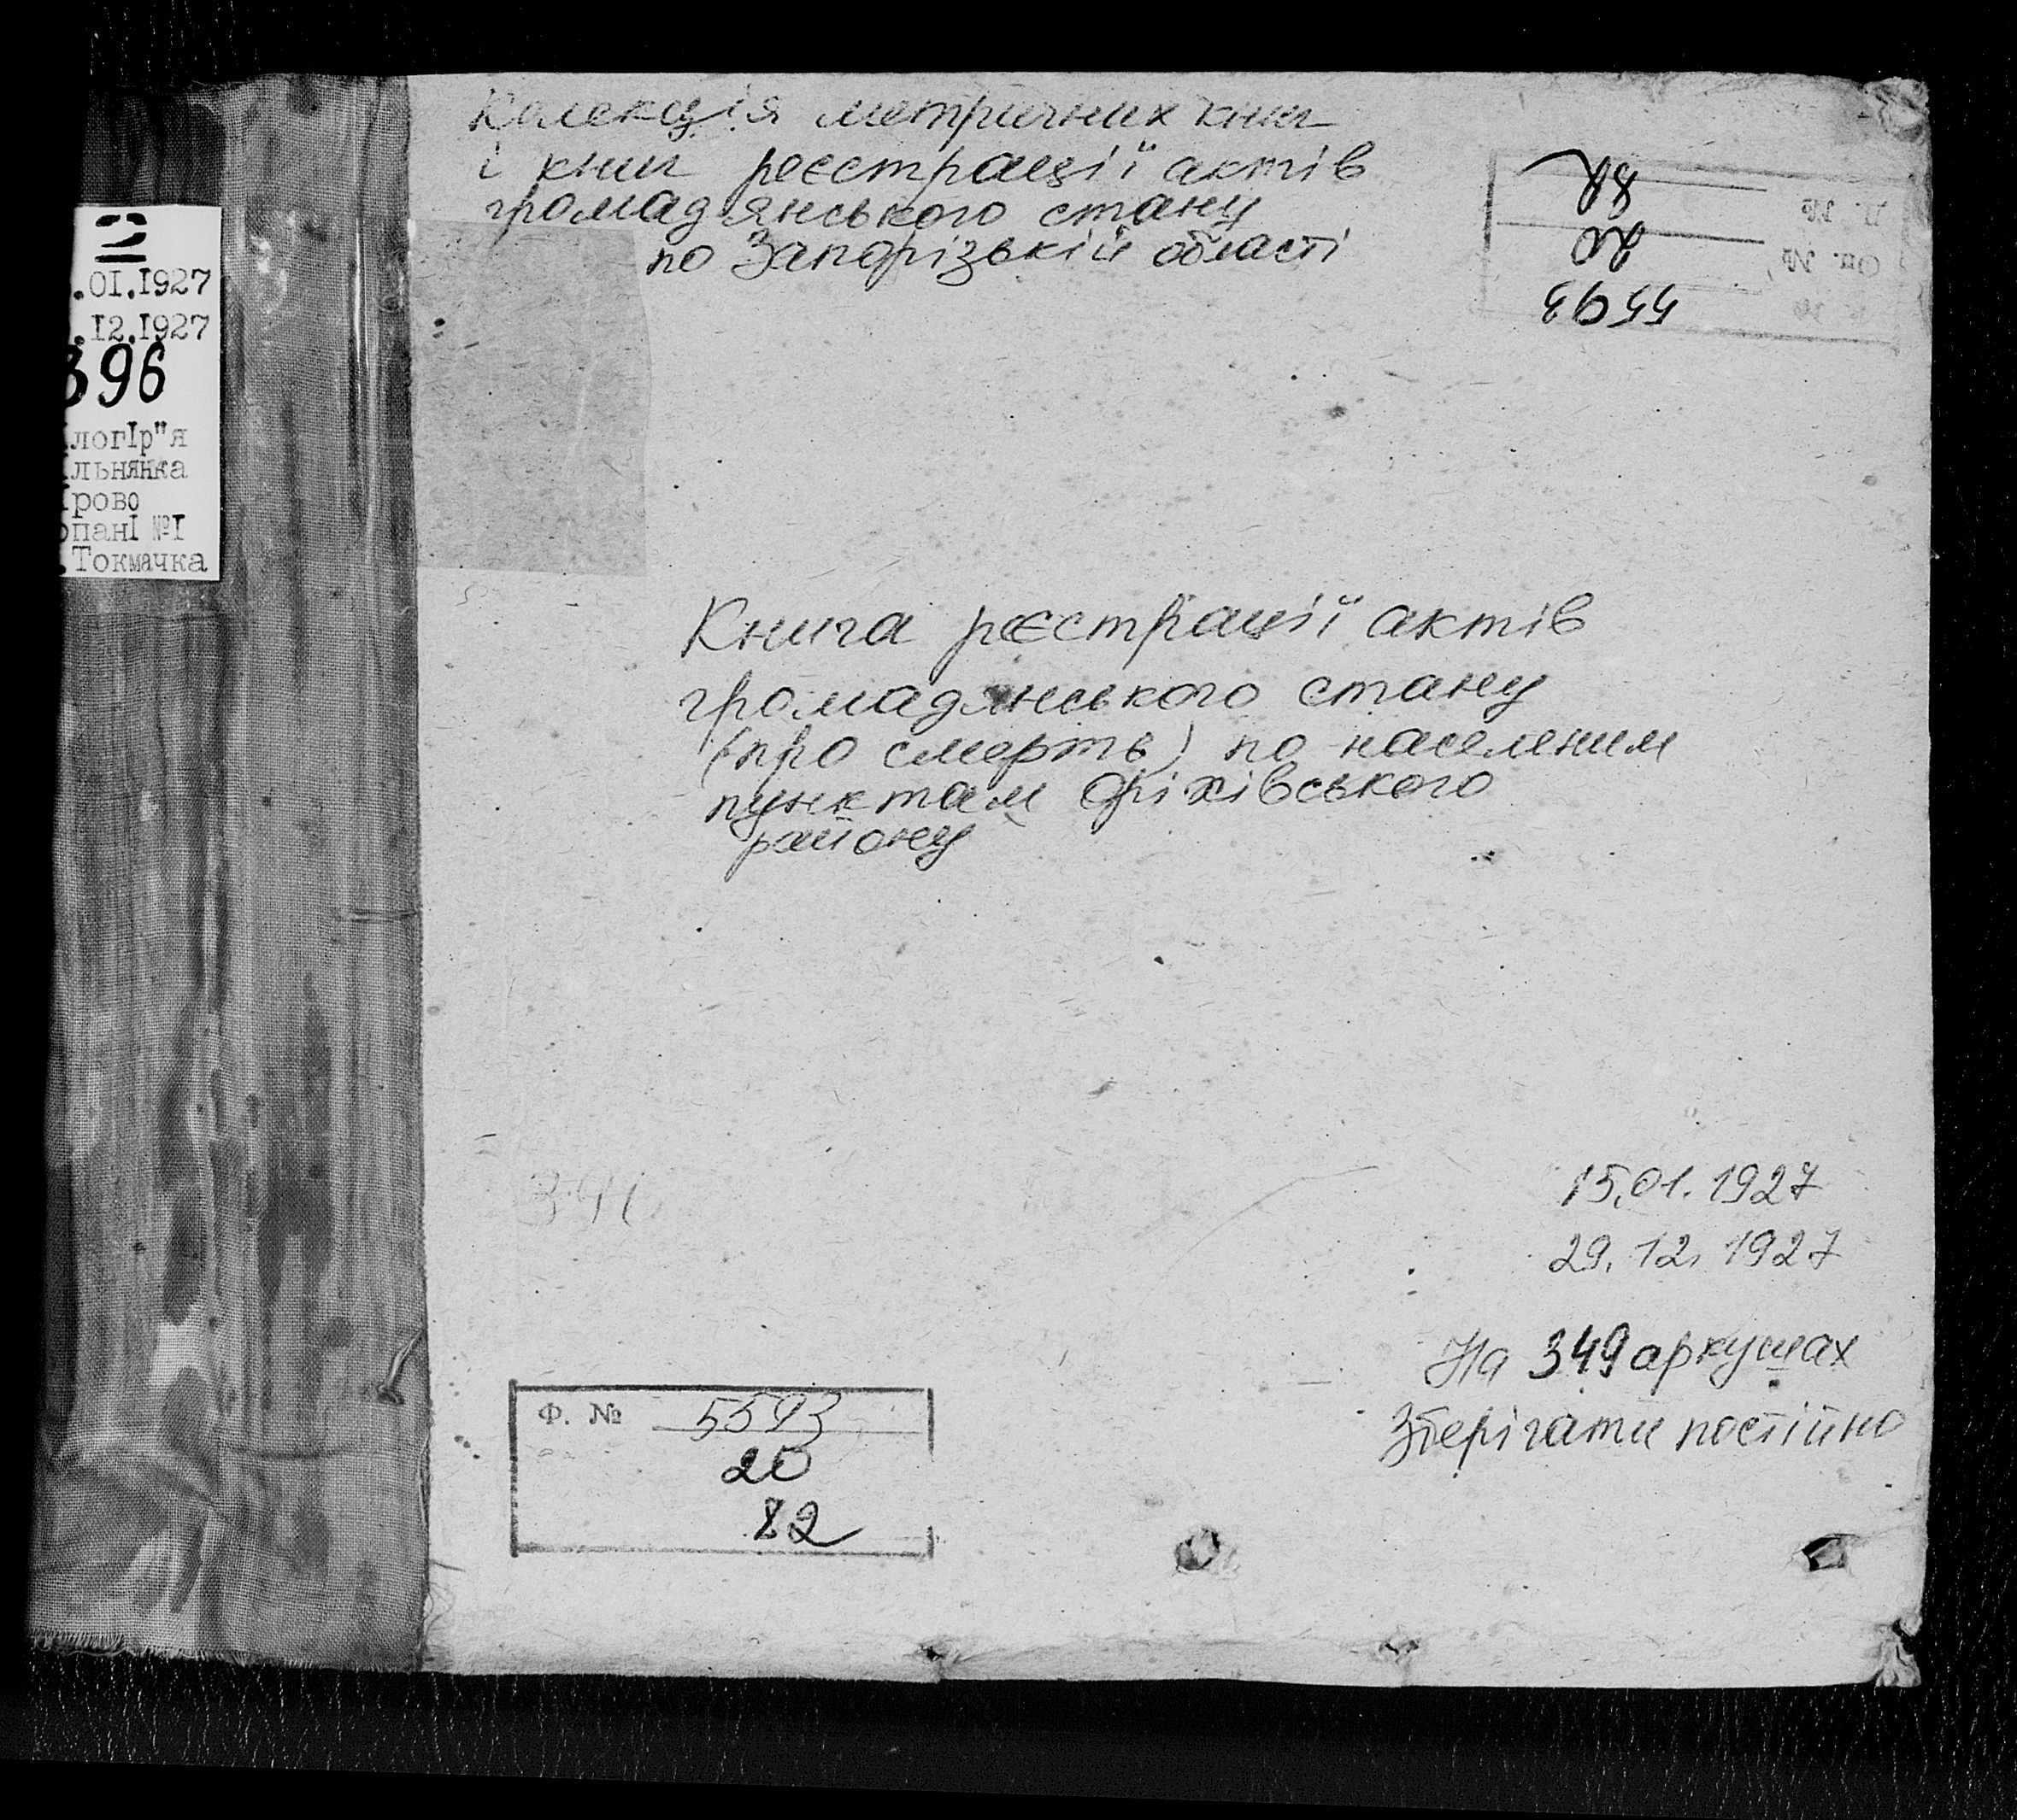 Колекція метричних книг
і книг реєстрації актів
громадянського стану
по Запорізькій області
5593
Оп. № 20
82
2
.01.1927
.12.1927
396
логІр"я
льнянка
Ірово
опанІ №І
.Токмачка
Книга реєстрації актів
громадянського стану
(про смерть) по населеним
пунктам Оріхівського
району
15.01.1927
29.12.1927
На 349 аркушах
Зберігати постійно
Ф. № 5593
20
82